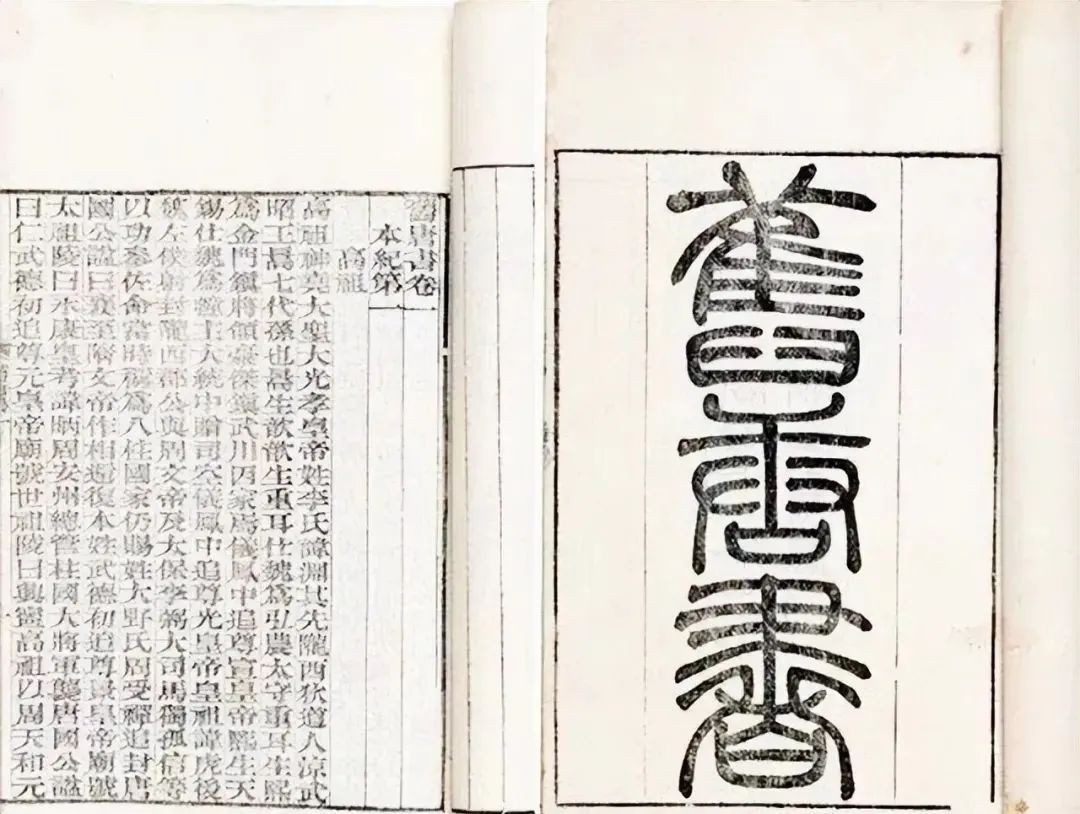 舊唐書
舊唐書卷一
本紀第一
高祖
高祖神堯大聖大光孝皇帝姓李氏諱淵其先隴西狄道人涼武
昭王暠七代孫也暠生歆歆生重耳仕魏爲弘農太守重耳生熙
爲金門鎭將領豪傑鎭武川因家焉儀鳳中追尊宣皇帝熙生天
錫仕魏爲幢主大統中贈司空儀鳳中追尊光皇帝皇祖諱虎後
魏左僕射封隴西郡公與周文帝及太保李弼大司馬獨孤信等
以功參佐命當時稱爲八柱國家仍賜姓大野氏周受禪追封唐
國公謚曰襄至隋文帝作相還復本姓武德初追尊景皇帝廟號
太祖陵曰永康皇考諱昞周安州總管柱國大將軍襲唐國公謚
曰仁武德初追尊元皇帝廟號世祖陵曰興寧高祖以周天和元